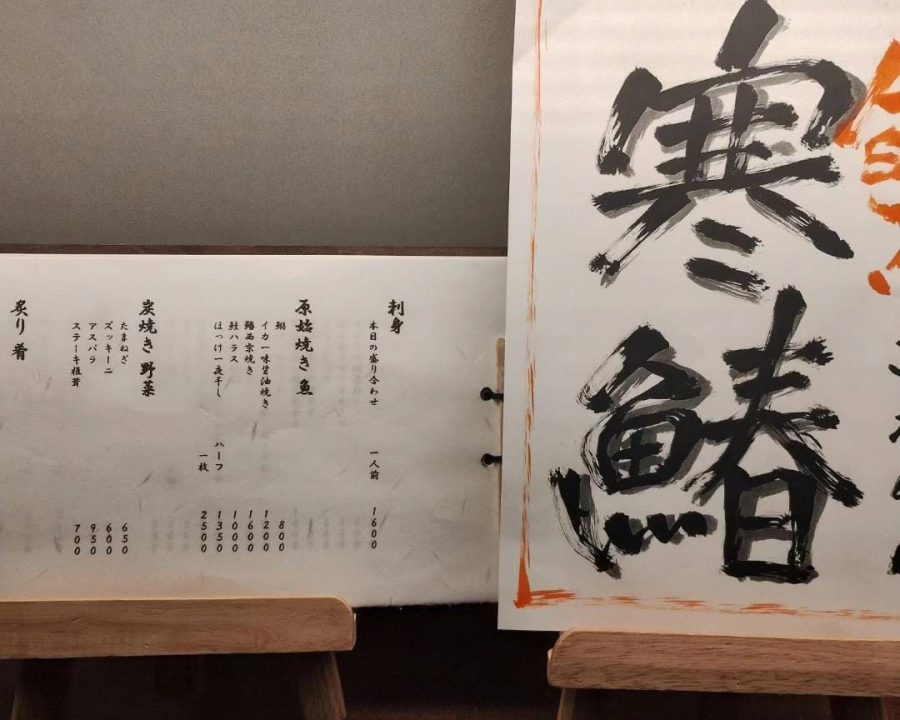 寒鰆
刺身
本日の盛り合わせ 一人前 1600
原始焼き 魚
鰯 800
イカ一味醤油焼き 1200
鰆西京焼き 1600
鮭ハラス 1000
ほっけ一夜干し ハーフ 1350
一枚 2500
炭焼き 野菜
たまねぎ 650
ズッキーニ 600
アスパラ 950
ステーキ椎茸 700
炙り肴